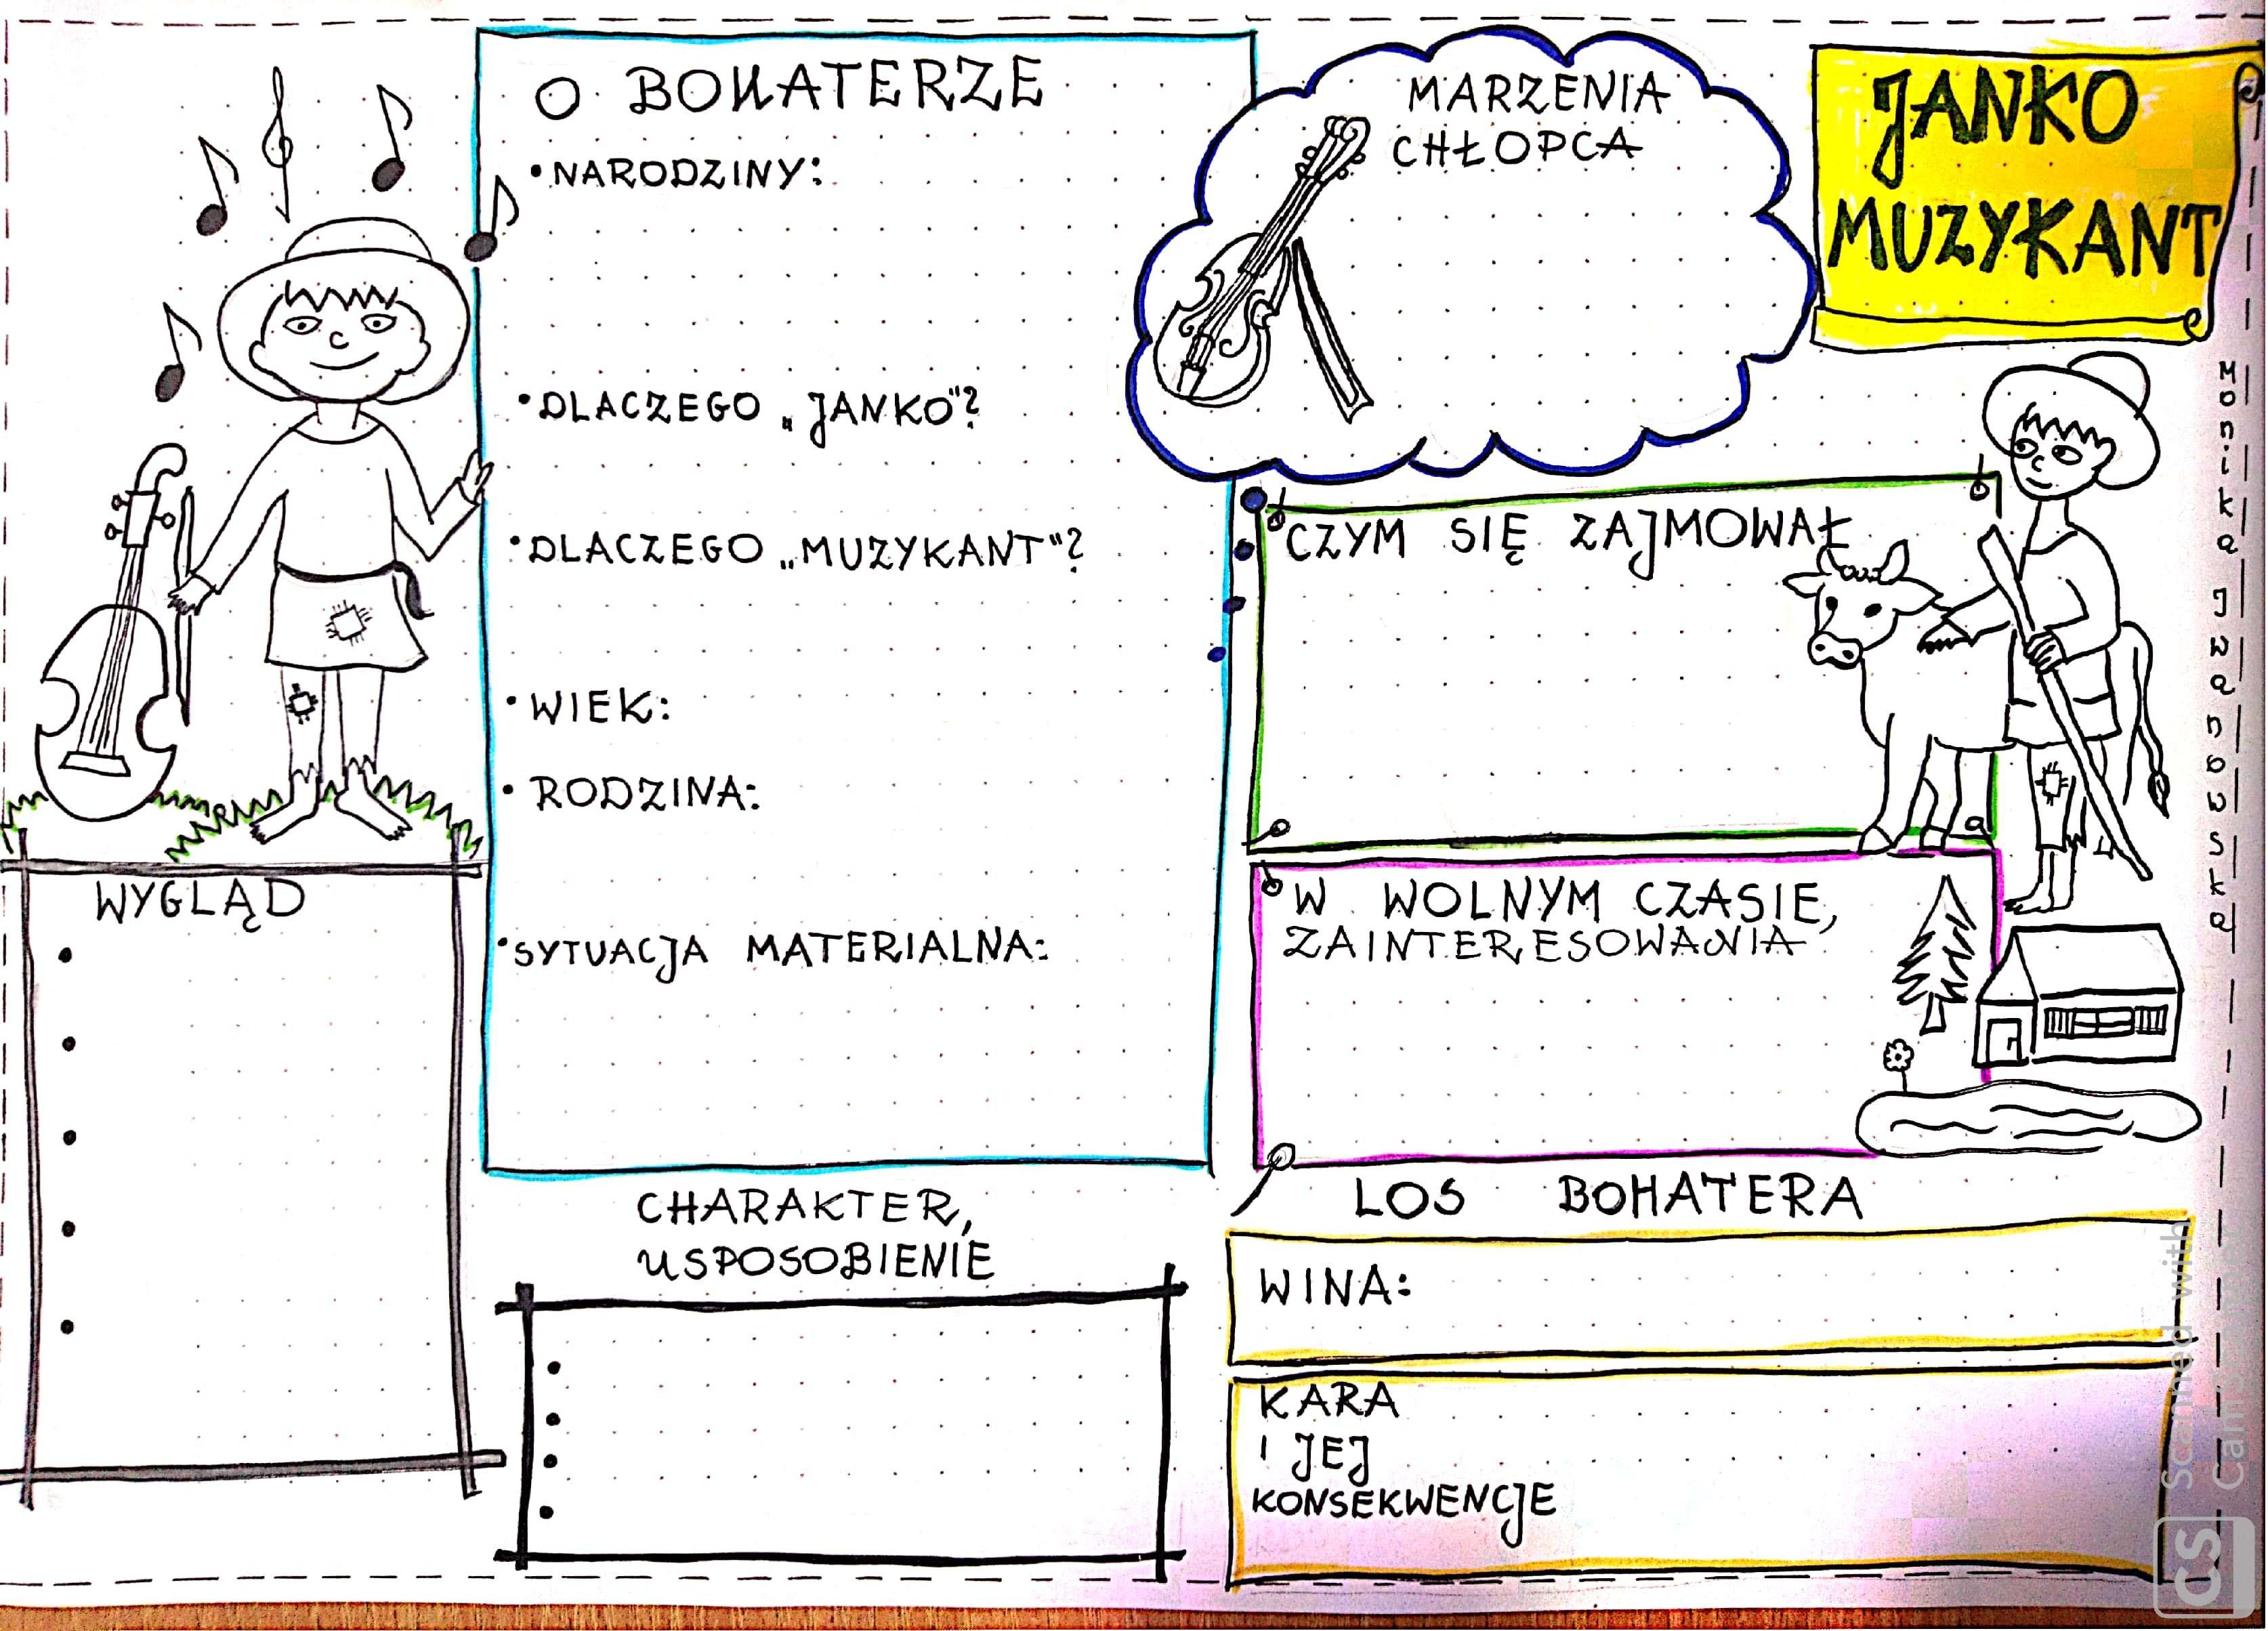 O BOHATERZE
•NARODZINY:
•DLACZEGO „JANKO"?
•DLACZEGO „MUZYKANT"?
•WIEK:
•RODZINA:
•SYTUACJA MATERIALNA:
MARZENIA
CHŁOPCA
JANKO
MUZYKANT
CZYM SIĘ ZAJMOWAŁ
W WOLNYM CZASIE,
ZAINTERESOWANIA
WYGLĄD
CHARAKTER,
USPOSOBIENIE
LOS BOHATERA
WINA:
KARA
I JEJ
KONSEKWENCJE
Monika Iwanowska
CS Scanned with
CamScanner